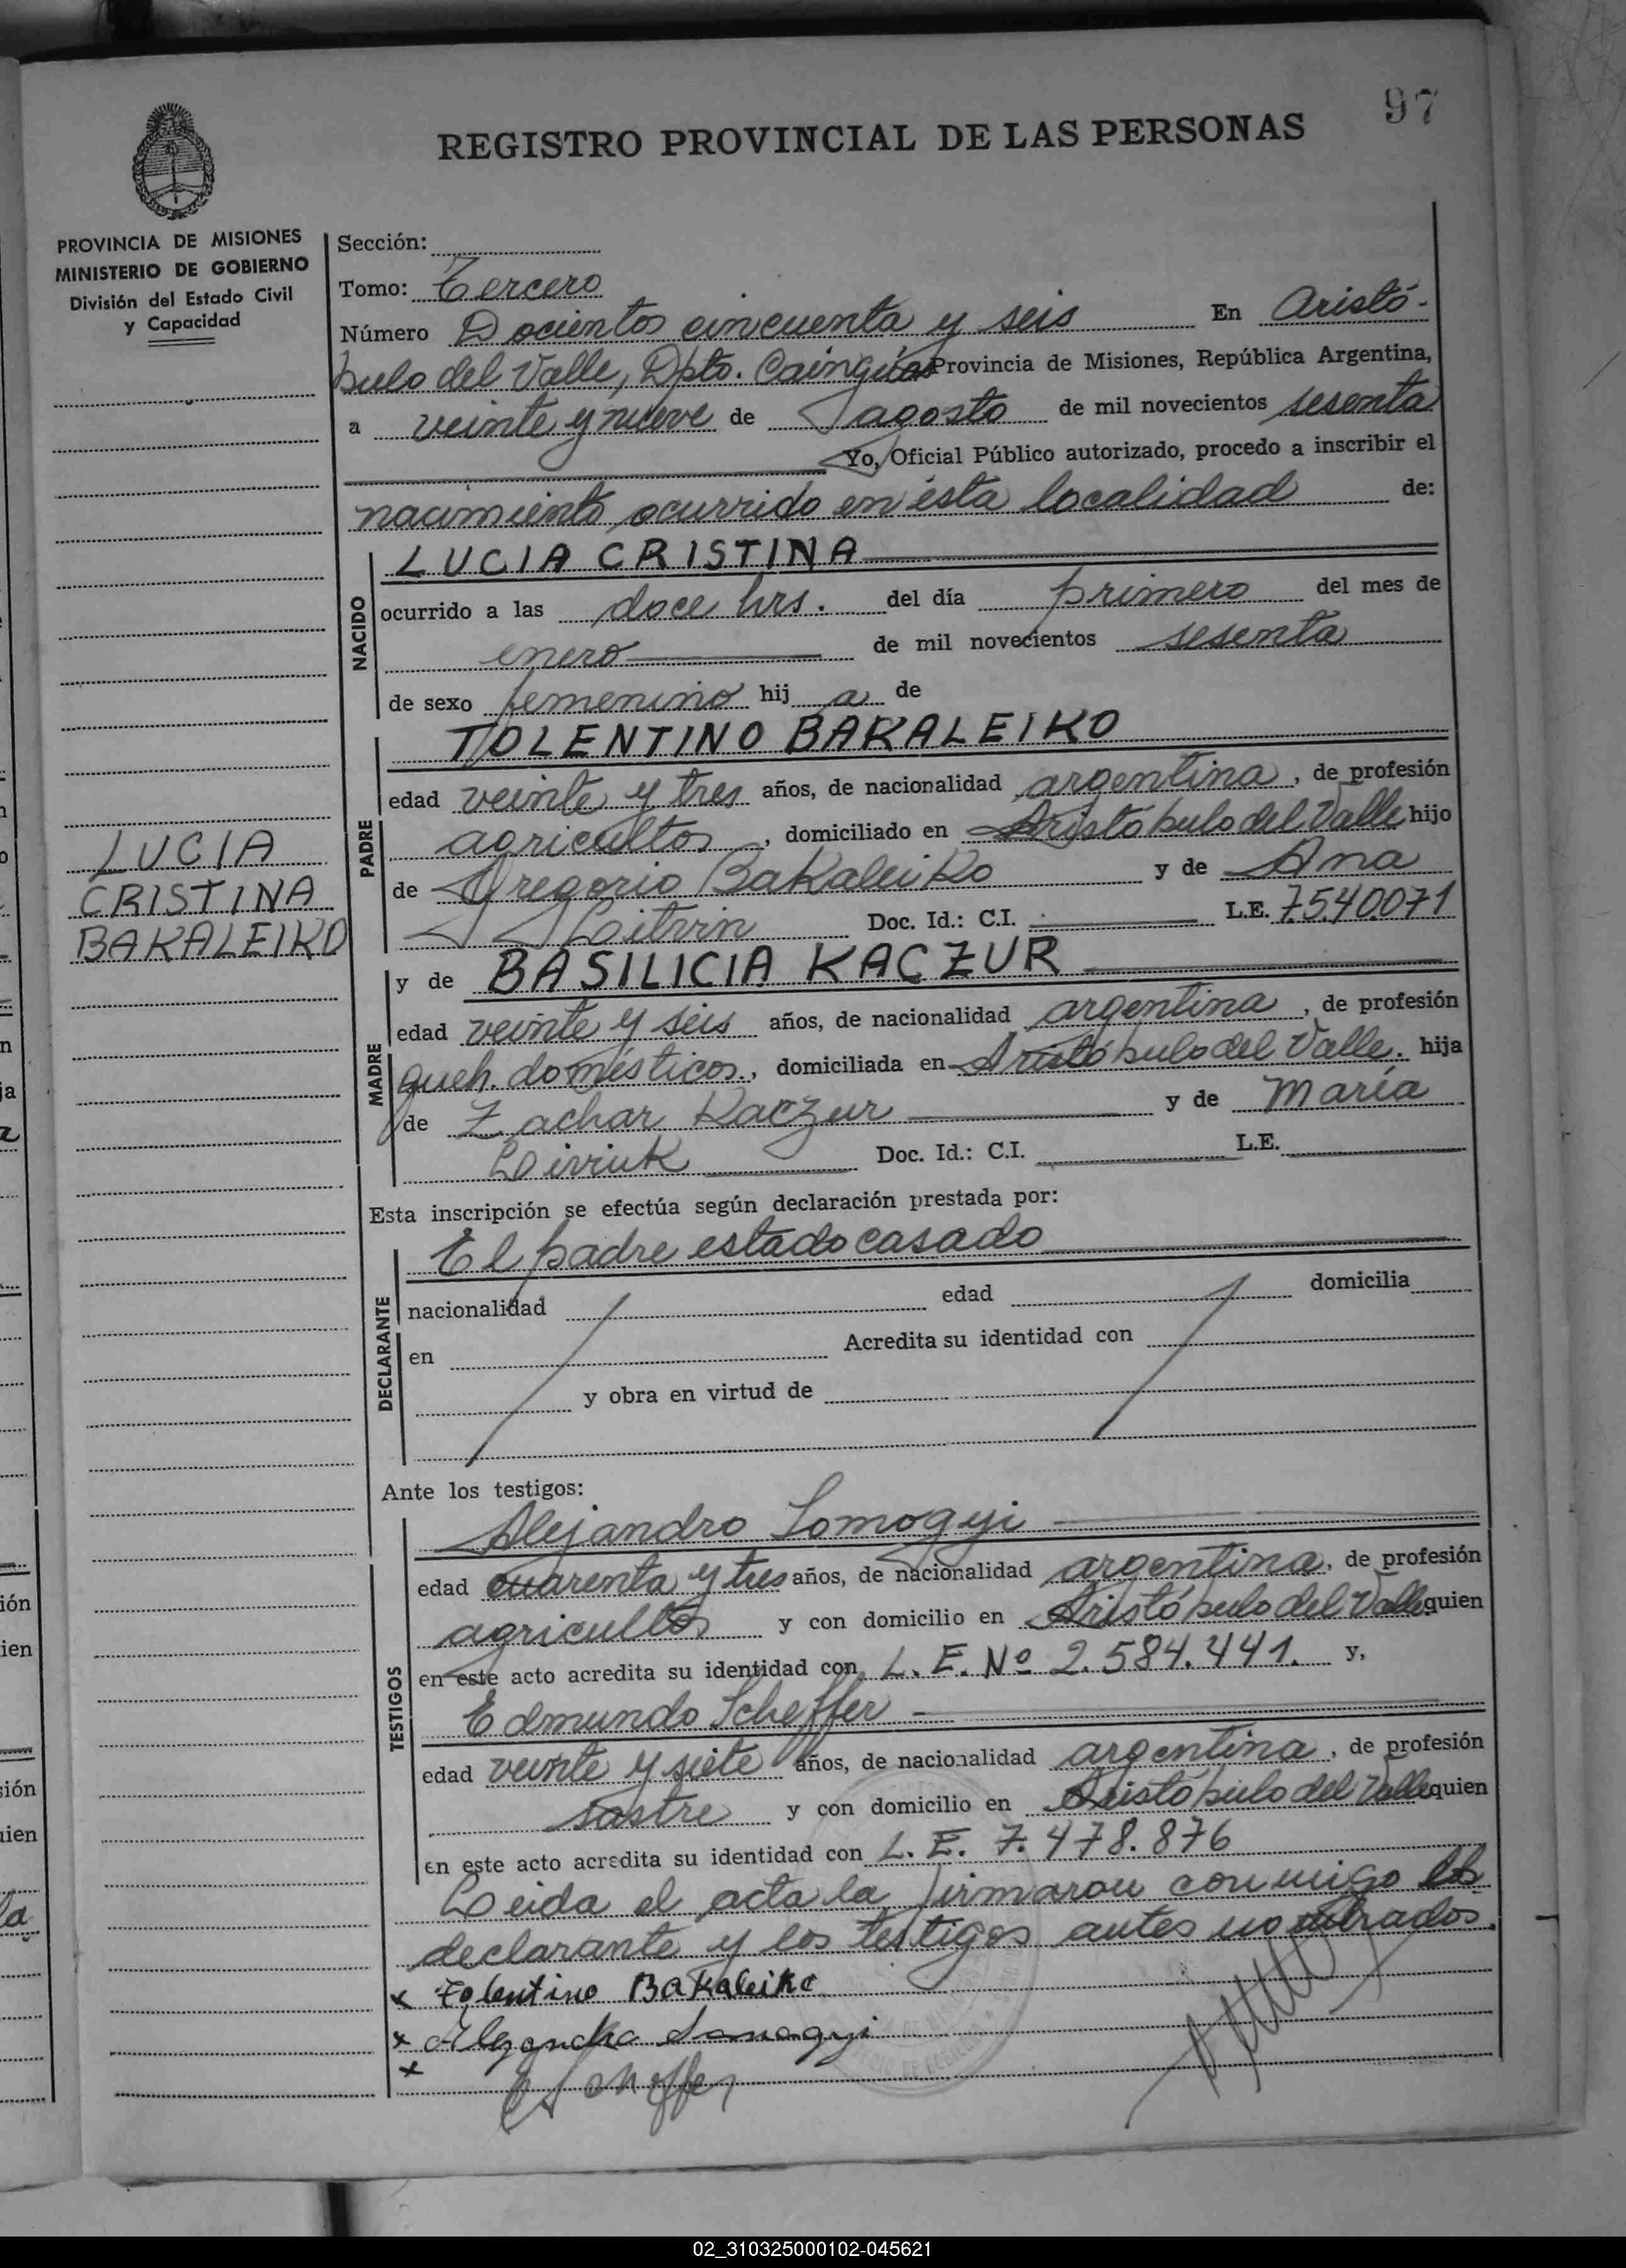 97
REGISTRO PROVINCIAL DE LAS PERSONAS
PROVINCIA DE MISIONES
MINISTERIO DE GOBIERNO
División del Estado Civil
y Capacidad
Sección:
Tomo: Tercero
Número Docientos cincuenta y seis En Aristó-
bulo del Valle, Dpto. Cainguás Provincia de Misiones, República Argentina,
a veinte y nueve de agosto de mil novecientos sesenta
Yo, Oficial Público autorizado, procedo a inscribir el
nacimiento ocurrido en ésta localidad de:
NACIDO
LUCIA CRISTINA
ocurrido a las doce hrs. del día primero del mes de
enero de mil novecientos sesenta
de sexo femenino hij a de
PADRE
TOLENTINO BAKALEIKO
edad veinte y tres años, de nacionalidad argentina, de profesión
agricultor, domiciliado en Aristóbulo del Valle hijo
de Gregorio Bakaleiko y de Ana
Doc. Id.: C.I. L.E. 7.540.071
LUCIA
CRISTINA
BAKALEIKO
MADRE
y de BASILICIA KACZUR
edad veinte y seis años, de nacionalidad argentina, de profesión
queh. domésticos, domiciliada en Aristóbulo del Valle. hija
de Zachar Kaczur y de María
Doc. Id.: C.I. L.E.
Esta inscripción se efectúa según declaración prestada por:
DECLARANTE
El padre estado casado
nacionalidad edad domicilia
en Acredita su identidad con
y obra en virtud de
Ante los testigos:
TESTIGOS
Alejandro Somogyi
edad cuarenta y tres años, de nacionalidad argentina, de profesión
agricultor y con domicilio en Aristóbulo del Valle quien
en este acto acredita su identidad con L. E. Nº 2.584.441. y,
Edmundo Scheffer
edad veinte y siete años, de nacionalidad argentina, de profesión
sastre y con domicilio en Aristóbulo del Valle quien
en este acto acredita su identidad con L. E. 7.478.876
Leida el acta la firmaron conmigo el
declarante y los testigos antes nombrados.
x Tolentino Bakaleiko
x Alejandro Somogyi
x Scheffer
02_310325000102-045621